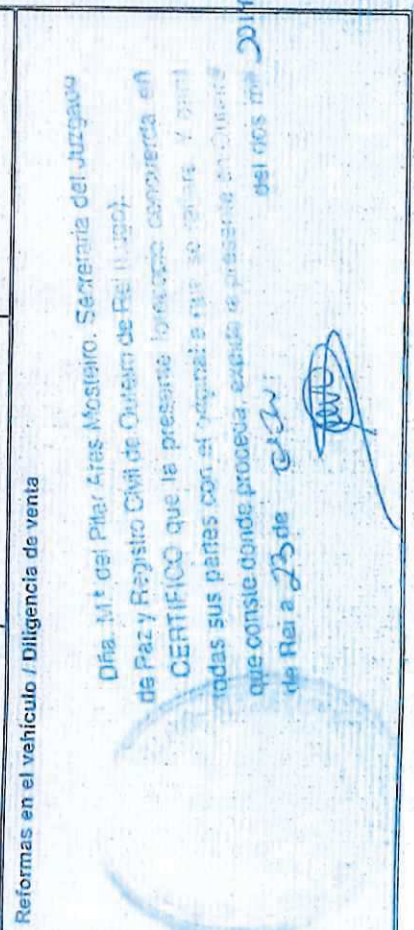 Reformas en el vehículo / Diligencia de venta
Dña. Mª del Pilar Ares Mosteiro. Secretaria del Juzgado
de Paz y Registro Civil de Outeiro de Rei (Lugo),
CERTIFICO que la presente fotocopia concuerda en
todas sus partes con el original a que se refiere. Y para
que conste donde proceda, expido la presente en Outeiro
de Rei a 23 de del dos mil 2014